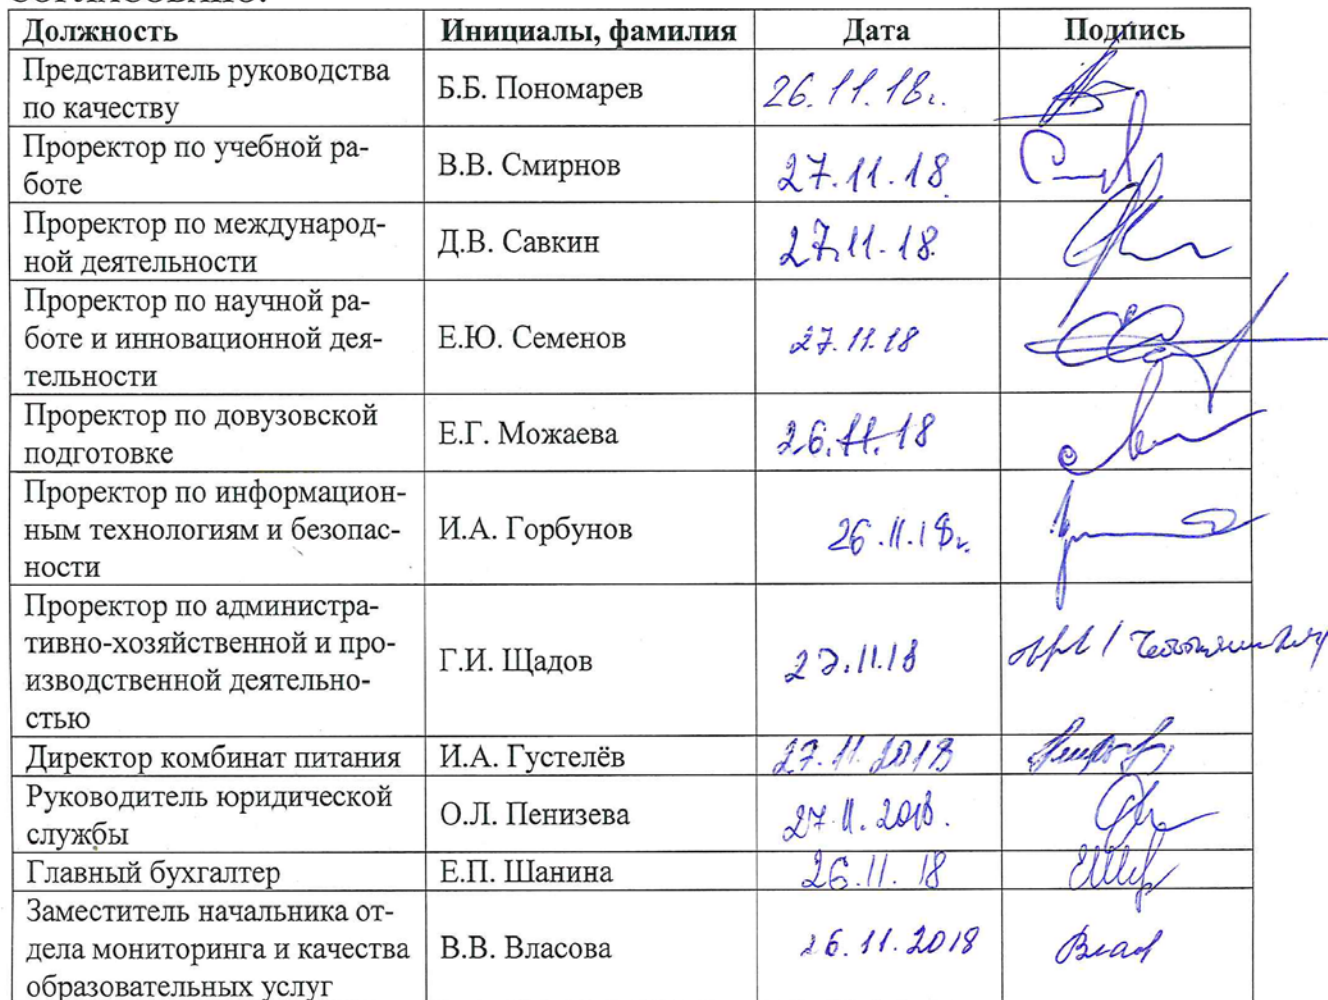 СОГЛАСОВАНО:
Должность Инициалы, фамилия Дата Подпись
Представитель руководства
по качеству
Б.Б. Пономарев 26.11.18г.
Проректор по учебной ра-
боте
В.В. Смирнов 27.11.18
Проректор по международ-
ной деятельности
Д.В. Савкин 27.11.18.
Проректор по научной ра-
боте и инновационной дея-
тельности
Е.Ю. Семенов 27.11.18
Проректор по довузовской
подготовке
Е.Г. Можаева 26.11.18
Проректор по информацион-
ным технологиям и безопас-
ности
И.А. Горбунов 26.11.18г.
Проректор по администра-
тивно-хозяйственной и про-
изводственной деятельно-
стью
Г.И. Щадов 27.11.18
Директор комбинат питания И.А. Густелёв 27.11.2018
Руководитель юридической
службы
О.Л. Пенизева 27.11.2018.
Главный бухгалтер Е.П. Шанина 26.11.18
Заместитель начальника от-
дела мониторинга и качества
образовательных услуг
В.В. Власова 26.11.2018 Влас